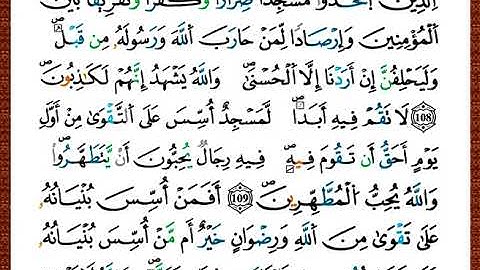 ٱلَّذِينَ ٱتَّخَذُوا۟ مَسْجِدًا ضِرَارًا وَكُفْرًا وَتَفْرِيقًۢا بَيْنَ
ٱلْمُؤْمِنِينَ وَإِرْصَادًا لِّمَنْ حَارَبَ ٱللَّهَ وَرَسُولَهُۥ مِن قَبْلُ ۚ
وَلَيَحْلِفُنَّ إِنْ أَرَدْنَآ إِلَّا ٱلْحُسْنَىٰ ۖ وَٱللَّهُ يَشْهَدُ إِنَّهُمْ لَكَٰذِبُونَ
108 لَا تَقُمْ فِيهِ أَبَدًا ۚ لَّمَسْجِدٌ أُسِّسَ عَلَى ٱلتَّقْوَىٰ مِنْ أَوَّلِ
يَوْمٍ أَحَقُّ أَن تَقُومَ فِيهِ ۚ فِيهِ رِجَالٌ يُحِبُّونَ أَن يَتَطَهَّرُوا۟ ۚ
وَٱللَّهُ يُحِبُّ ٱلْمُطَّهِّرِينَ 109 أَفَمَنْ أَسَّسَ بُنْيَٰنَهُۥ
عَلَىٰ تَقْوَىٰ مِنَ ٱللَّهِ وَرِضْوَٰنٍ خَيْرٌ أَم مَّنْ أَسَّسَ بُنْيَٰنَهُۥ